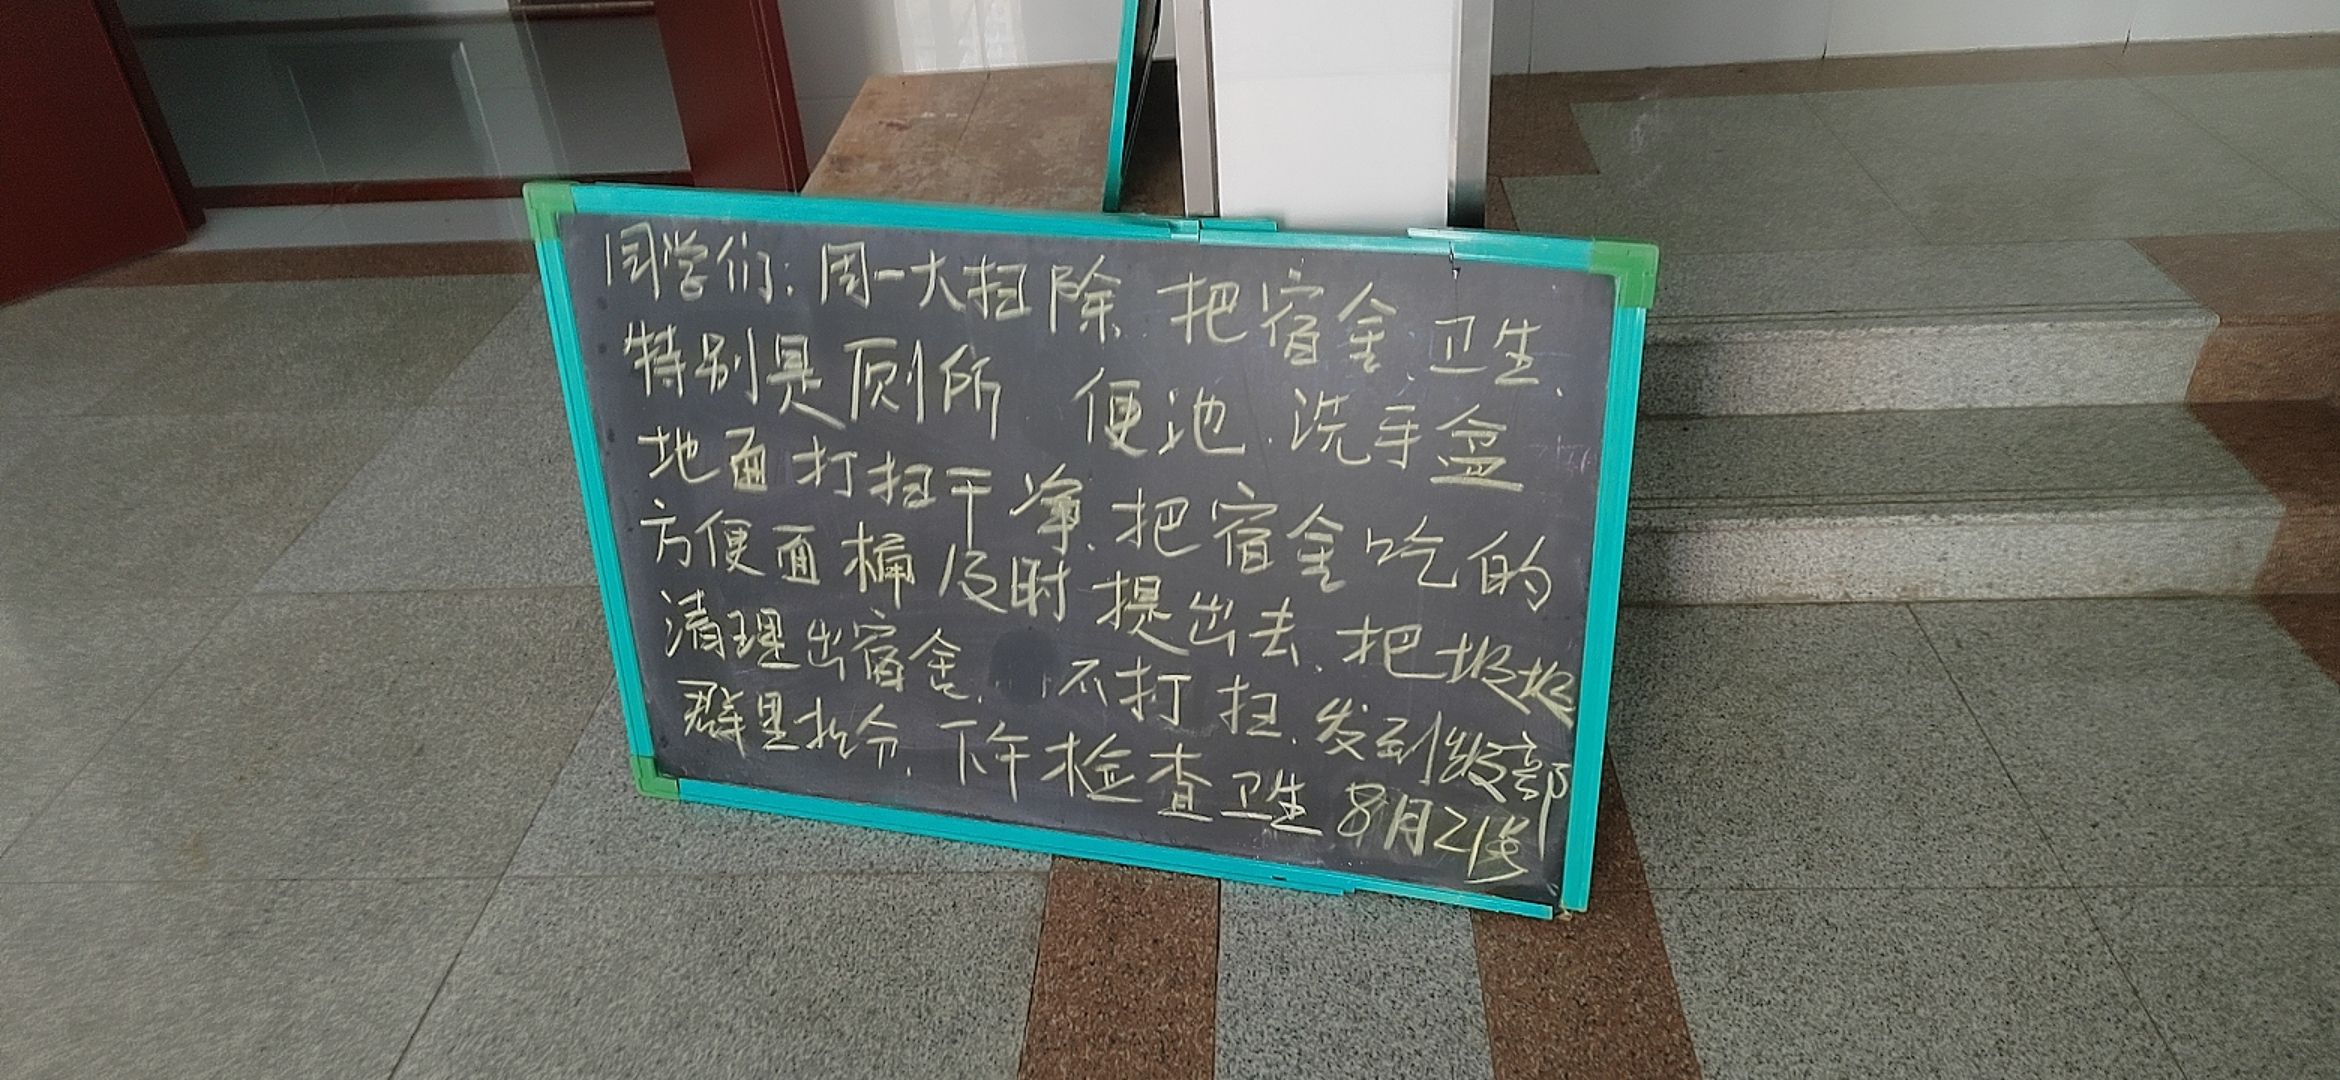 同学们：周一大扫除 把宿舍卫生、
特别是厕所 便池、洗手盆
地面打扫干净、把宿舍吃的
方便面桶及时提出去、把垃圾
清理出宿舍、不打扫、发到级部
群里扣分、下午检查卫生 8月21号